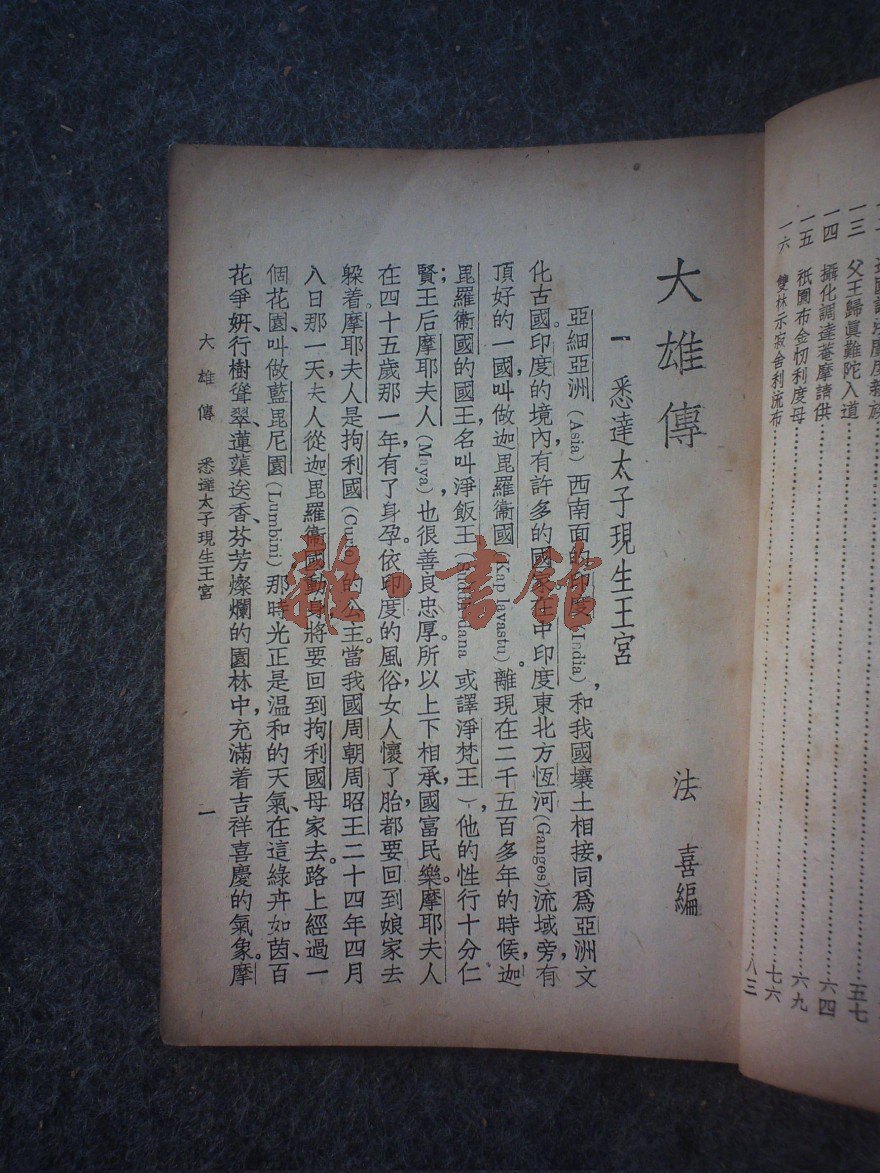 一三 父王歸眞難陀入道……五七
一四 攝化調達菴摩請供……六四
一五 祇園布金忉利度母……六九
一六 雙林示寂舍利流布……七六
八三
大雄傳
法喜編
一 悉達太子現生王宮
亞細亞洲(Asia)西南面的印度(India)，和我國壤土相接，同爲亞洲文
化古國。印度的境內，有許多的國家，在中印度東北方恆河(Ganges)流域旁，有
頂好的一國，叫做迦毘羅衞國(Kapilavastu)。離現在二千五百多年的時候，迦
毘羅衞國的國王，名叫淨飯王( 或譯淨梵王)，他的性行十分仁
賢；王后摩耶夫人(Maya)，也很善良忠厚。所以上下相承，國富民樂。摩耶夫人
在四十五歲那一年，有了身孕。依印度的風俗，女人懷了胎，都要回到娘家去
躲着。摩耶夫人是拘利國 的公主。當我國周朝周昭王二十四年四月
八日那一天，夫人從迦毘羅衞國動身，將要回到拘利國母家去。路上經過一
個花園，叫做藍毘尼園(Lumbini)。那時光正是温和的天氣，在這綠卉如茵、百
花爭妍、行樹聳翠、蓮蕖送香、芬芳燦爛的園林中，充滿着吉祥喜慶的氣象。摩
大雄傳 悉達太子現生王宮 一
雜·書館